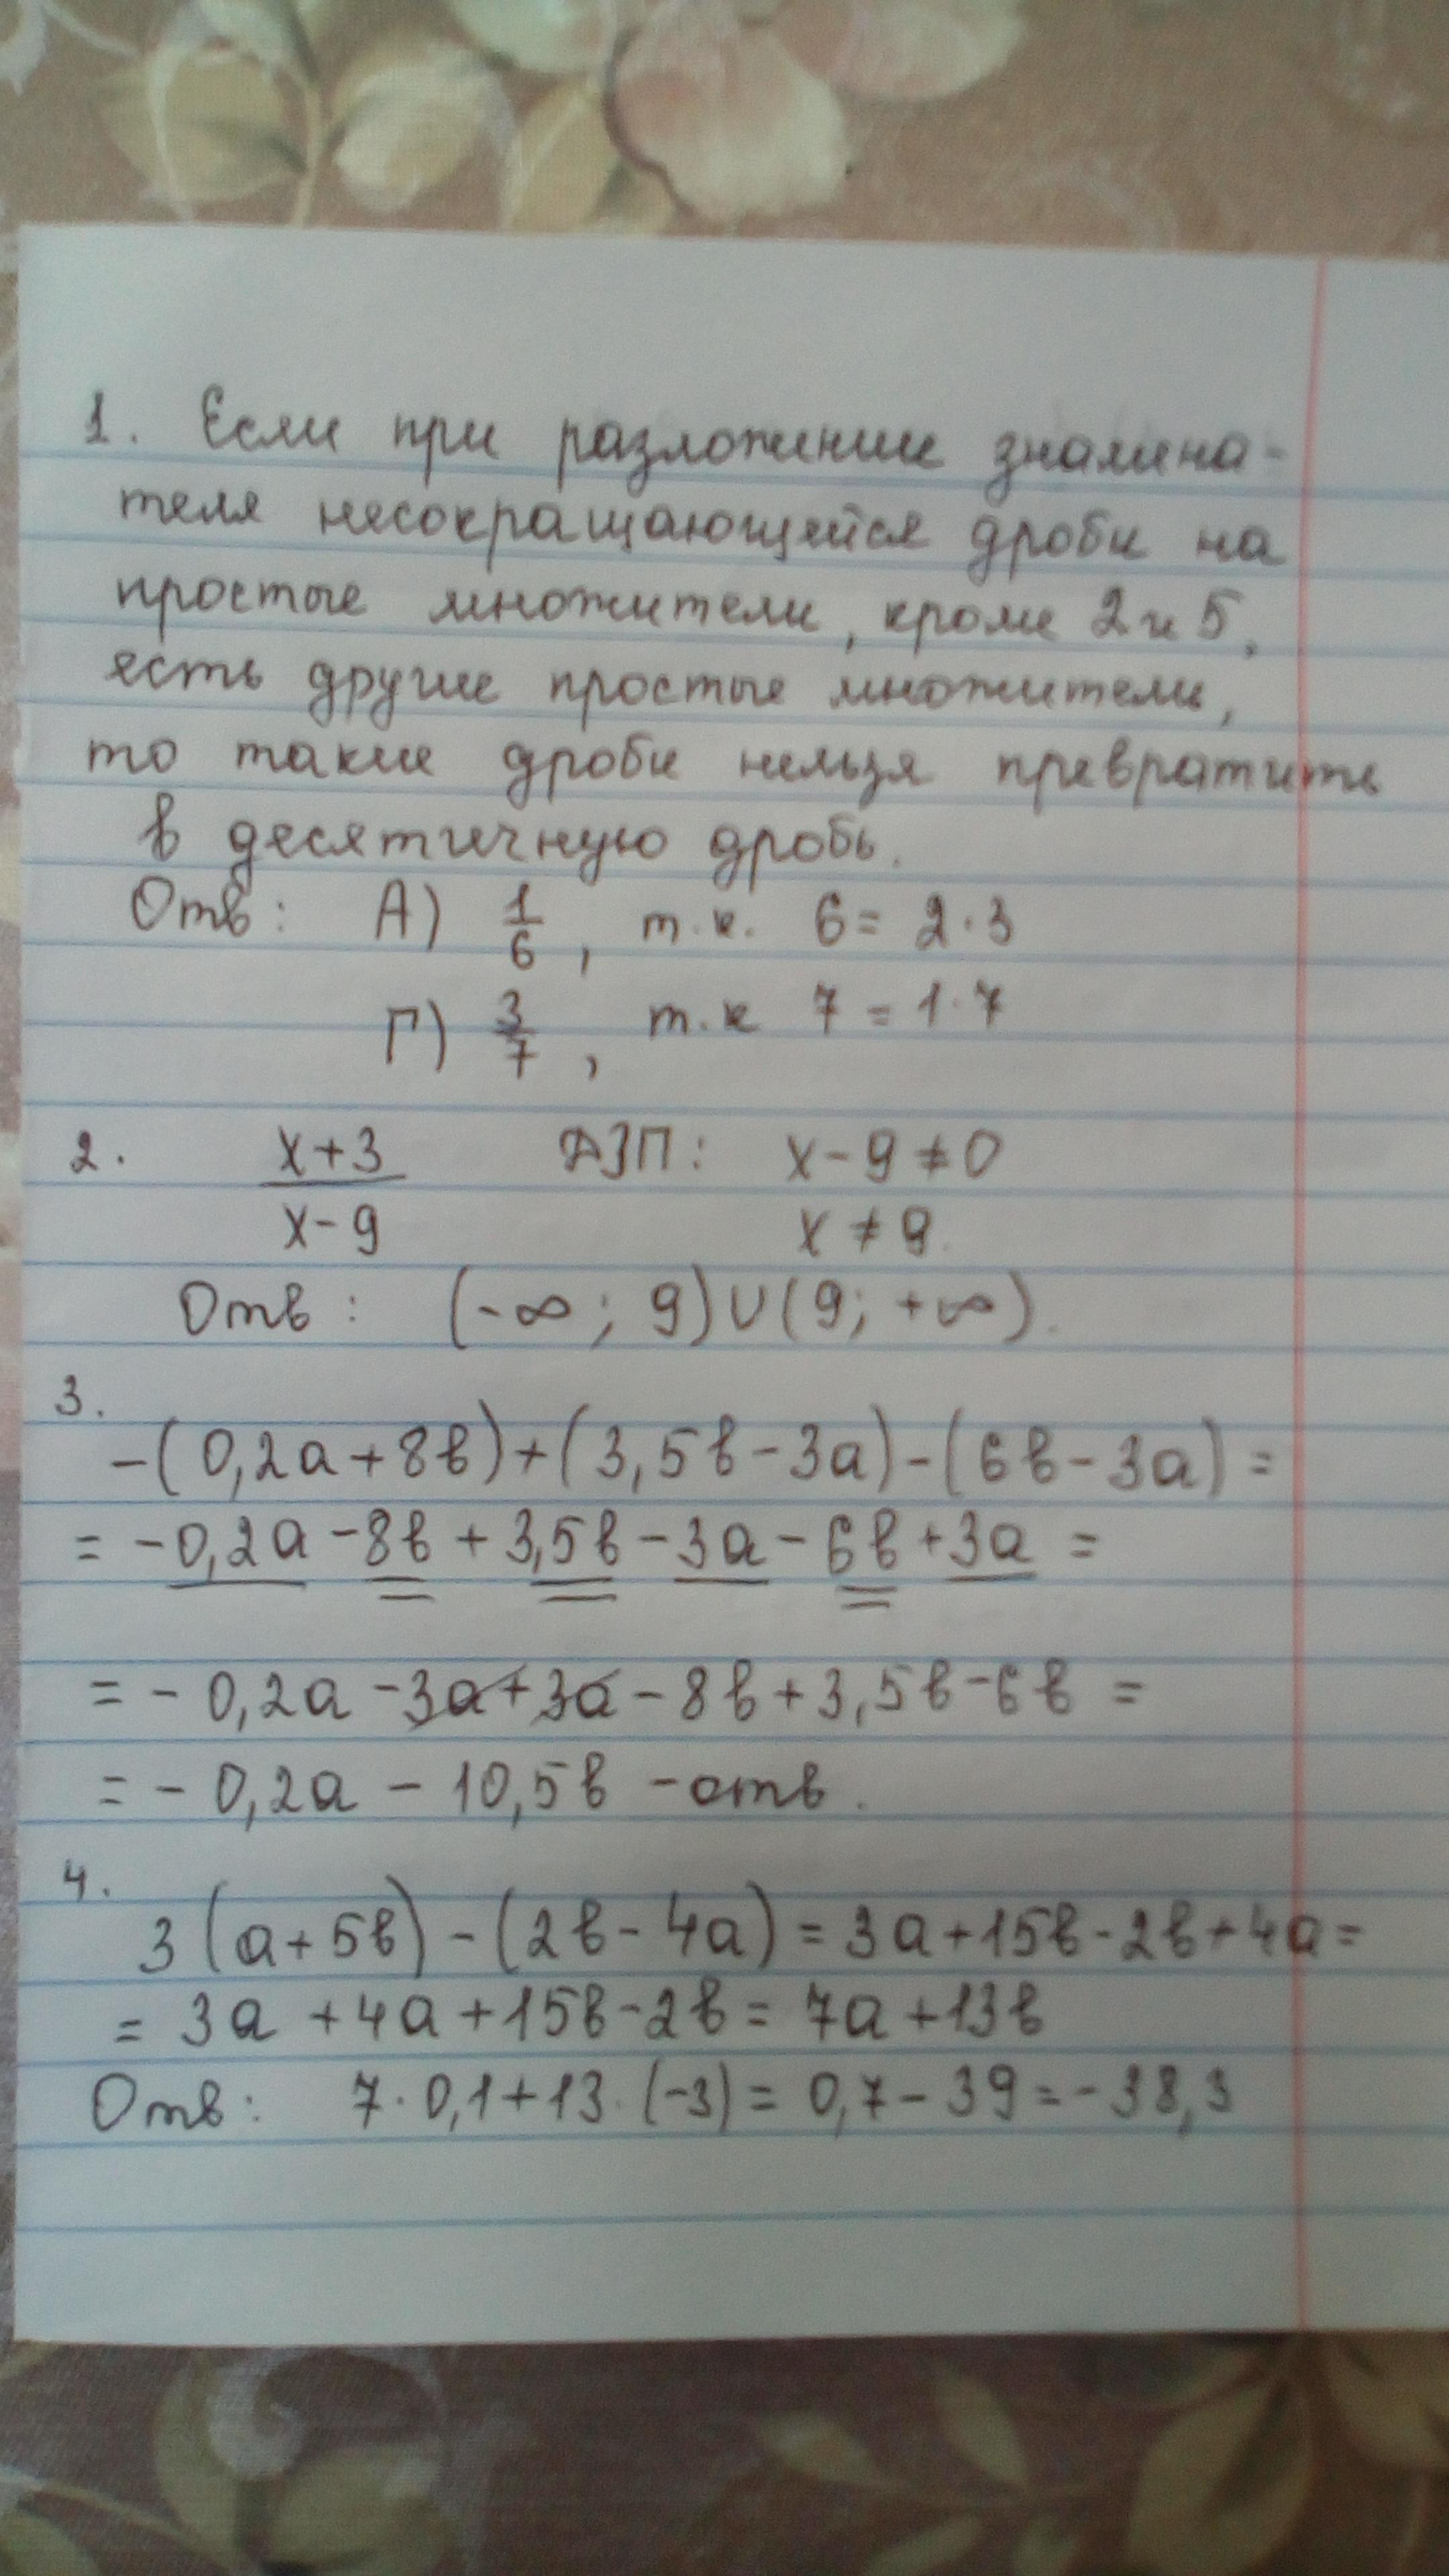 1. Если при разложении знамена-
теля несокращающейся дроби на
простые множители, кроме 2 и 5,
есть другие простые множители,
то такие дроби нельзя превратить
в десятичную дробь.
Отв: А) 1/6, т.к. 6 = 2·3
Г) 3/7, т.к 7 = 1·7
2. (x+3)/(x-9) ДЗП: x-9≠0
x≠9.
Отв: (-∞; 9)∪(9; +∞).
3.
-(0,2a+8b)+(3,5b-3a)-(6b-3a)=
= -0,2a-8b+3,5b-3a-6b+3a=
= -0,2a-3a+3a-8b+3,5b-6b=
= -0,2a-10,5b -отв.
4.
3(a+5b)-(2b-4a)=3a+15b-2b+4a=
= 3a+4a+15b-2b=7a+13b
Отв: 7·0,1+13·(-3)=0,7-39=-38,3